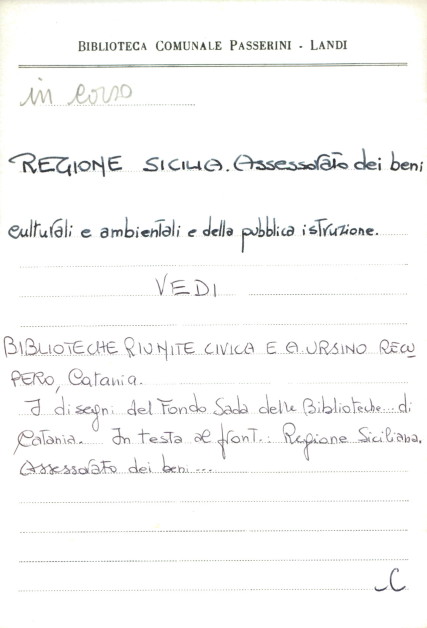 BIBLIOTECA COMUNALE PASSERINI - LANDI
in corso
REGIONE SICILIA. Assessorato dei beni
culturali e ambientali e della pubblica istruzione.
VEDI
BIBLIOTECHE RIUNITE CIVICA E A. URSINO RECU
PERO, Catania.
I disegni del Fondo Sada delle Biblioteche... di
Catania. In testa al front.: Regione Siciliana.
Assessorato dei beni...
C